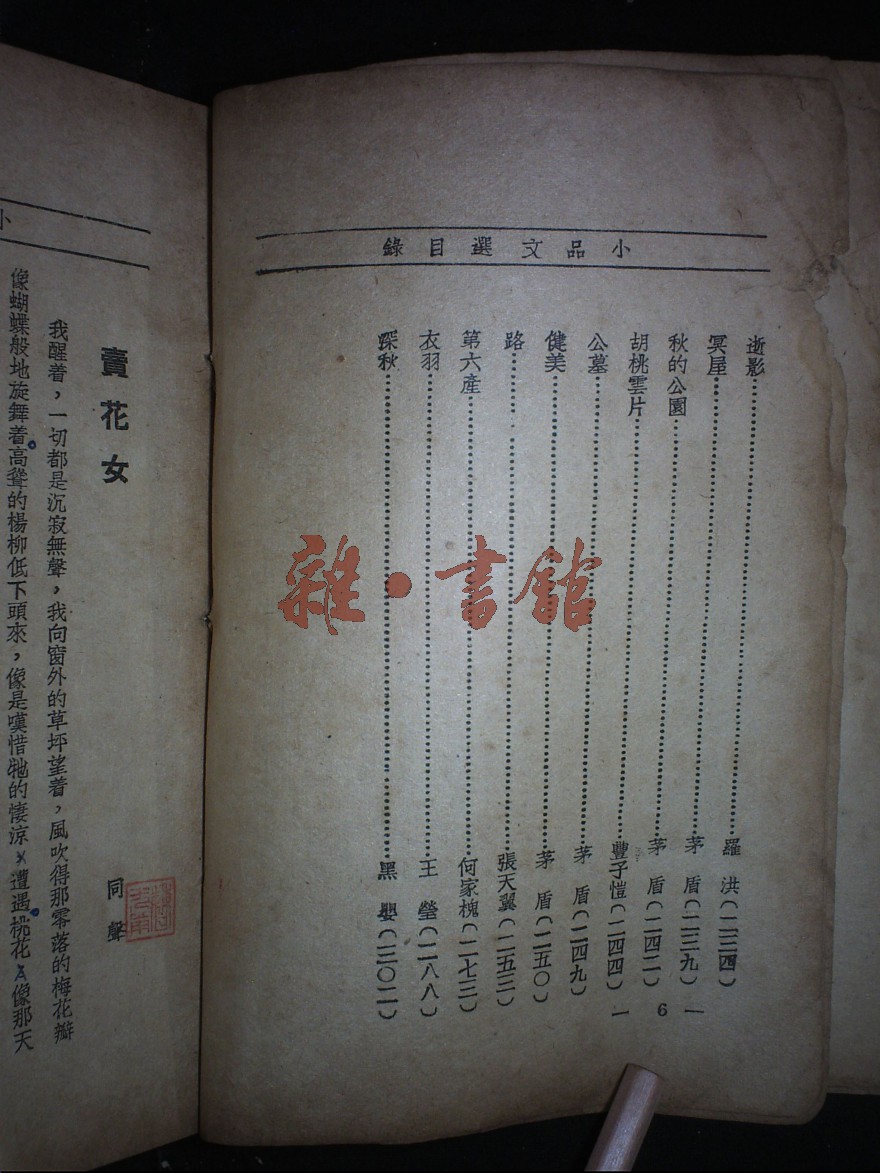 小品文選目錄
逝影 羅洪(二三四)
冥屋 茅盾(二三九)
秋的公園 茅盾(二四二)
胡桃雲片 豐子愷(二四四)
公墓 茅盾(二四九)
健美 茅盾(二五〇)
路 張天翼(二五三)
第六產 何家槐(二七三)
衣羽 王瑩(二八八)
深秋 黑嬰(三〇二)
— 6 —
雜·書館
小
賣花女
同聲
我醒着，一切都是沉寂無聲，我向窗外的草坪望着，風吹得那零落的梅花瓣
像蝴蝶般地旋舞着高聳的楊柳低下頭來，像是嘆惜牠的悽涼×遭遇桃花A像那天